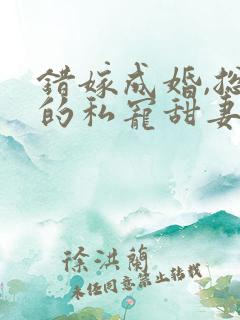 错嫁成婚,总
的私宠甜妻
徐洪蘭
未经同意禁止转载